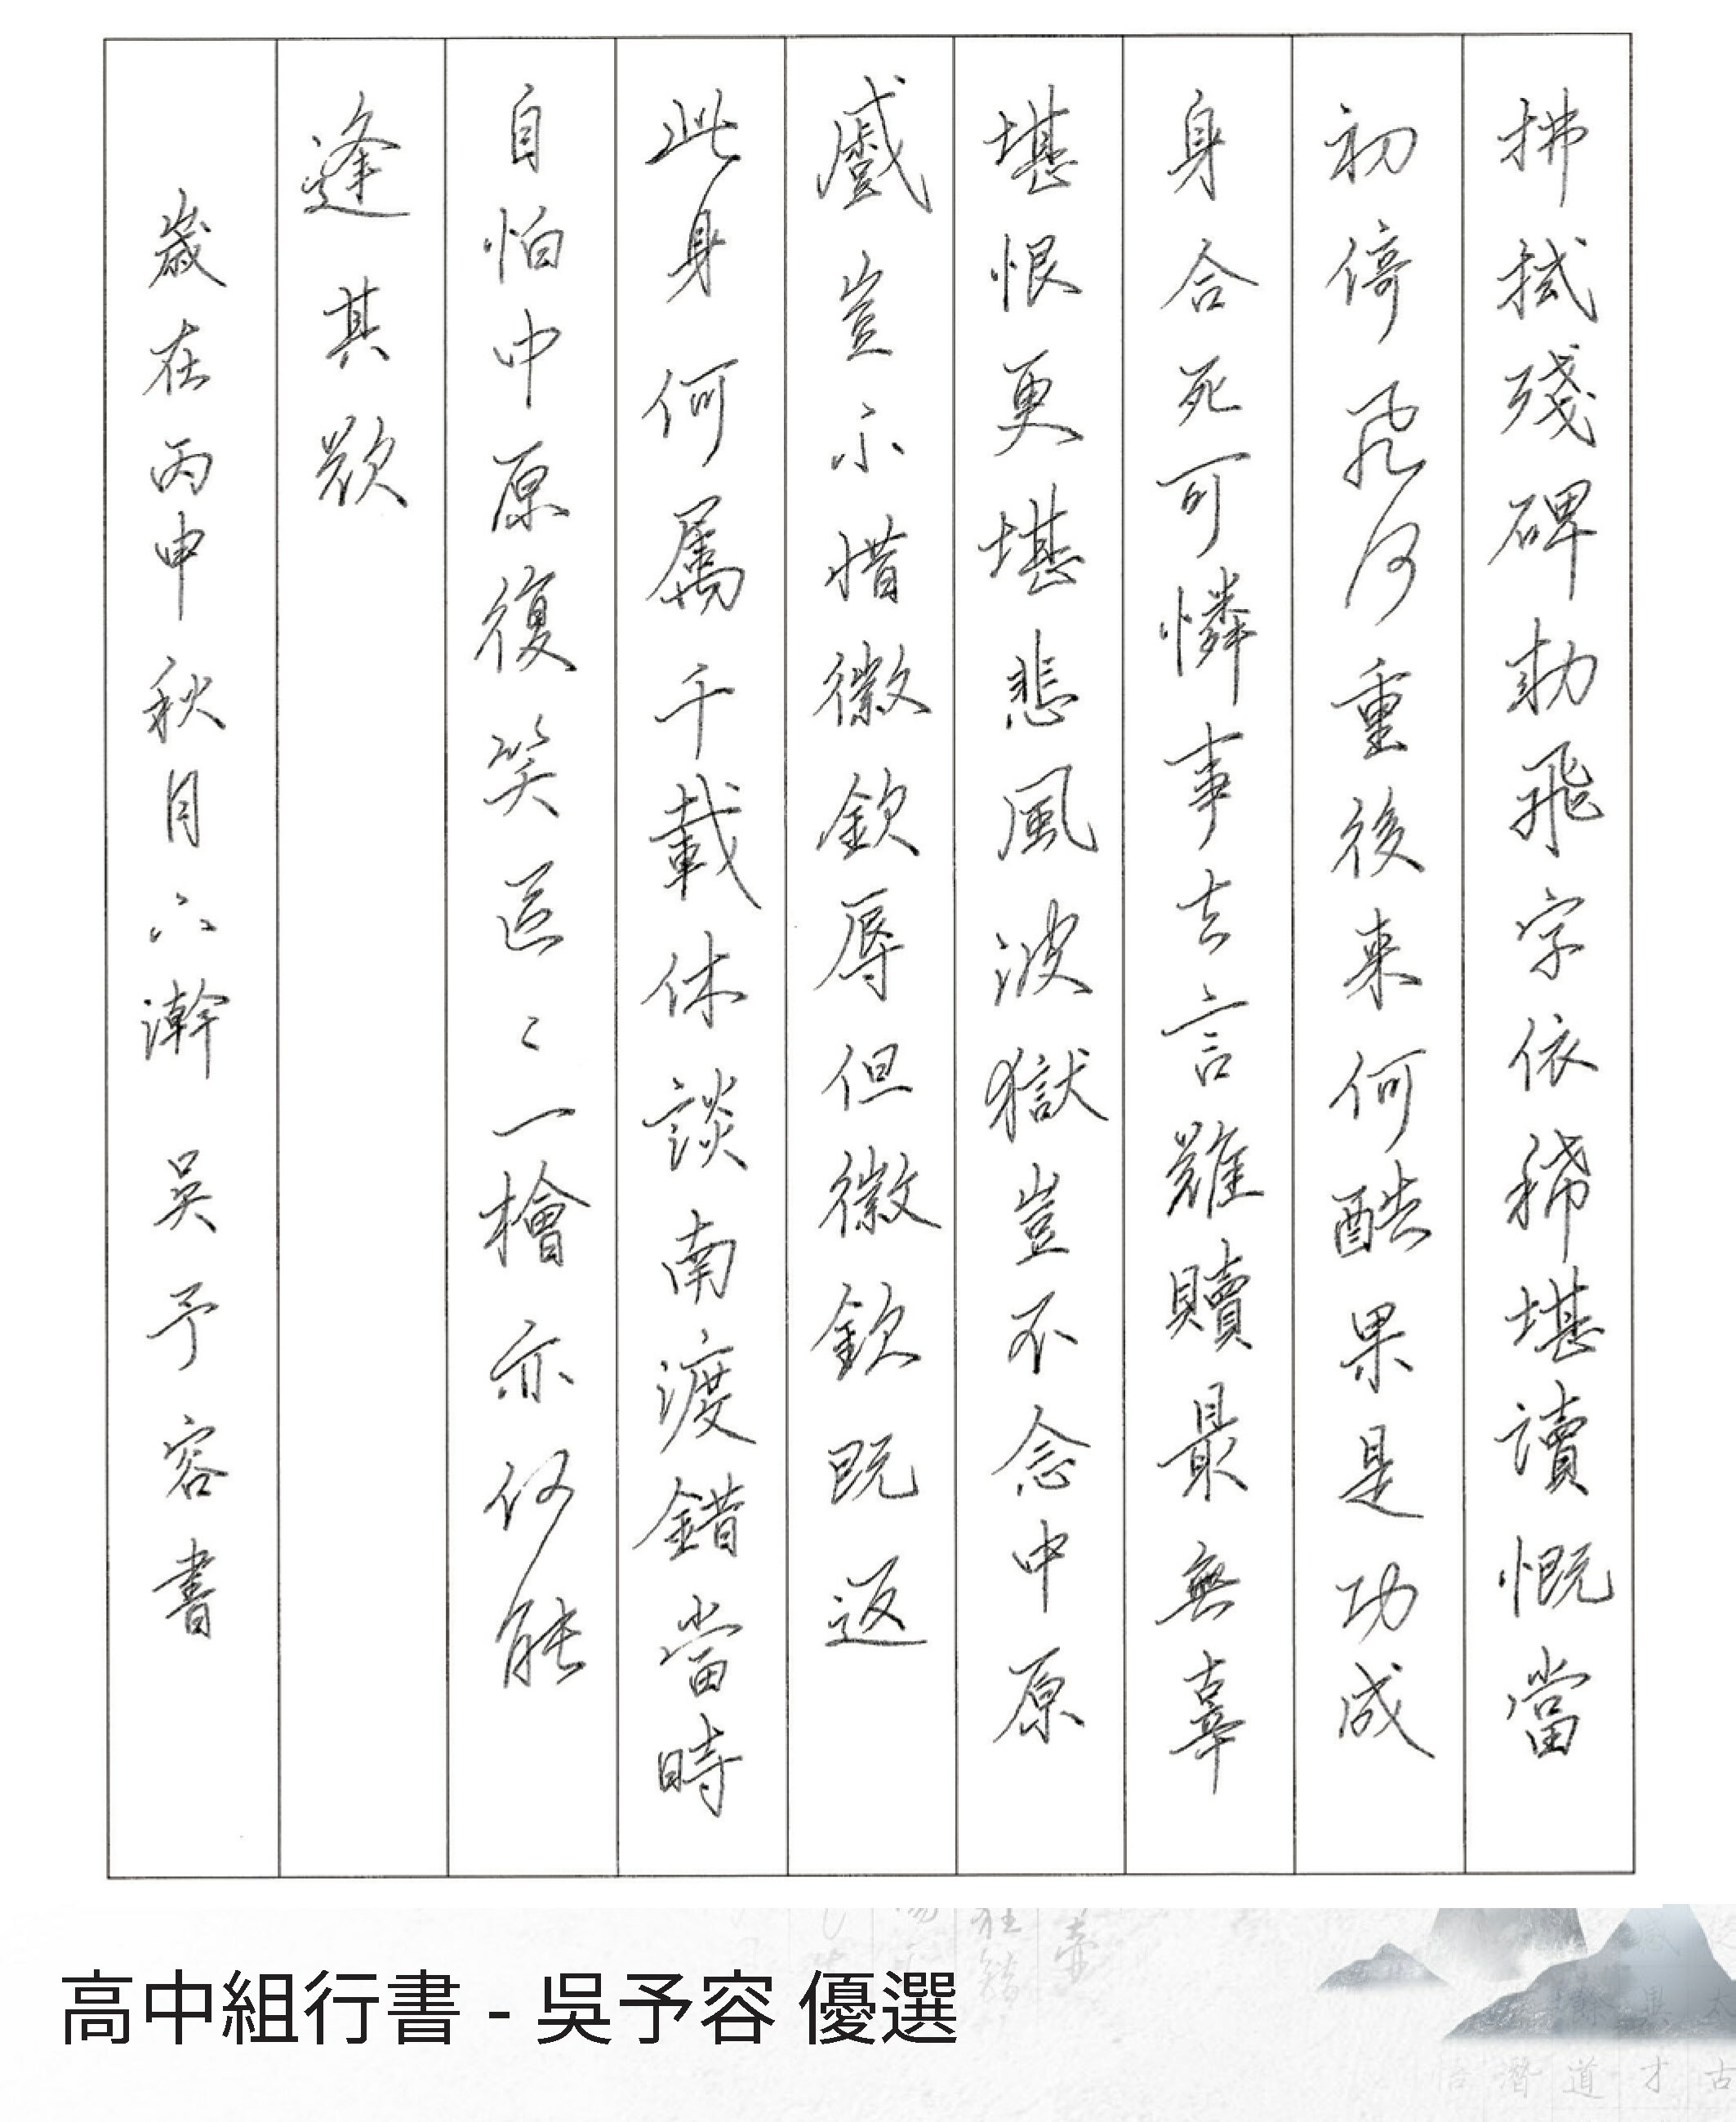 拂拭殘碑勅飛字依稀堪讀慨當
初倚飛何重後來何酷果是功成
身合死可憐事去言難贖最無辜
堪恨更堪悲風波獄豈不念中原
蹙豈不惜徽欽辱但徽欽既返
此身何屬千載休談南渡錯當時
自怕中原復笑區〻一檜亦何能
逢其欲
歲在丙申秋月六澣 吳予容書
高中組行書 - 吳予容 優選
道 才 古